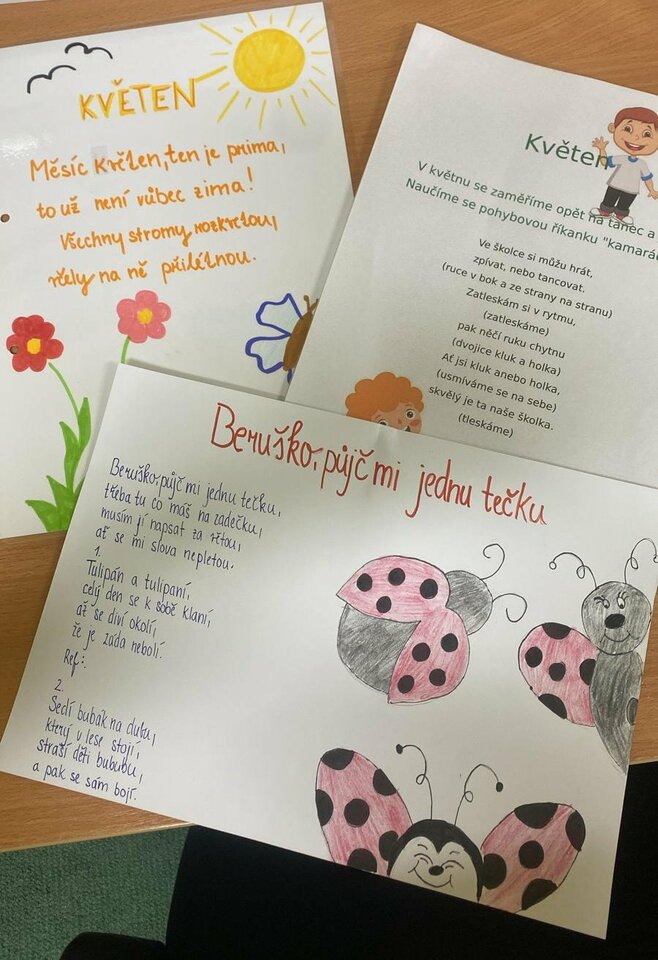 KVĚTEN
Měsíc květen, ten je prima,
to už není vůbec zima!
Všechny stromy rozkvetou,
včely na ně přilétnou.
Květen
V květnu se zaměříme opět na tanec a
Naučíme se pohybovou říkanku "kamará
Ve školce si můžu hrát,
zpívat, nebo tancovat.
(ruce v bok a ze strany na stranu)
Zatleskám si v rytmu,
(zatleskáme)
pak něčí ruku chytnu
(dvojice kluk a holka)
Ať jsi kluk anebo holka,
(usmíváme se na sebe)
skvělý je ta naše školka.
(tleskáme)
Beruško, půjč mi jednu tečku
Beruško, půjč mi jednu tečku,
třeba tu co máš na zadečku,
musím jí napsat za větou,
ať se mi slova nepletou.
1.
Tulipán a tulipaní,
celý den se k sobě klaní,
až se diví okolí,
že je záda nebolí.
Ref:
2.
Sedí bubák na dubu,
který v lese stojí,
straší děti bububu,
a pak se sám bojí.